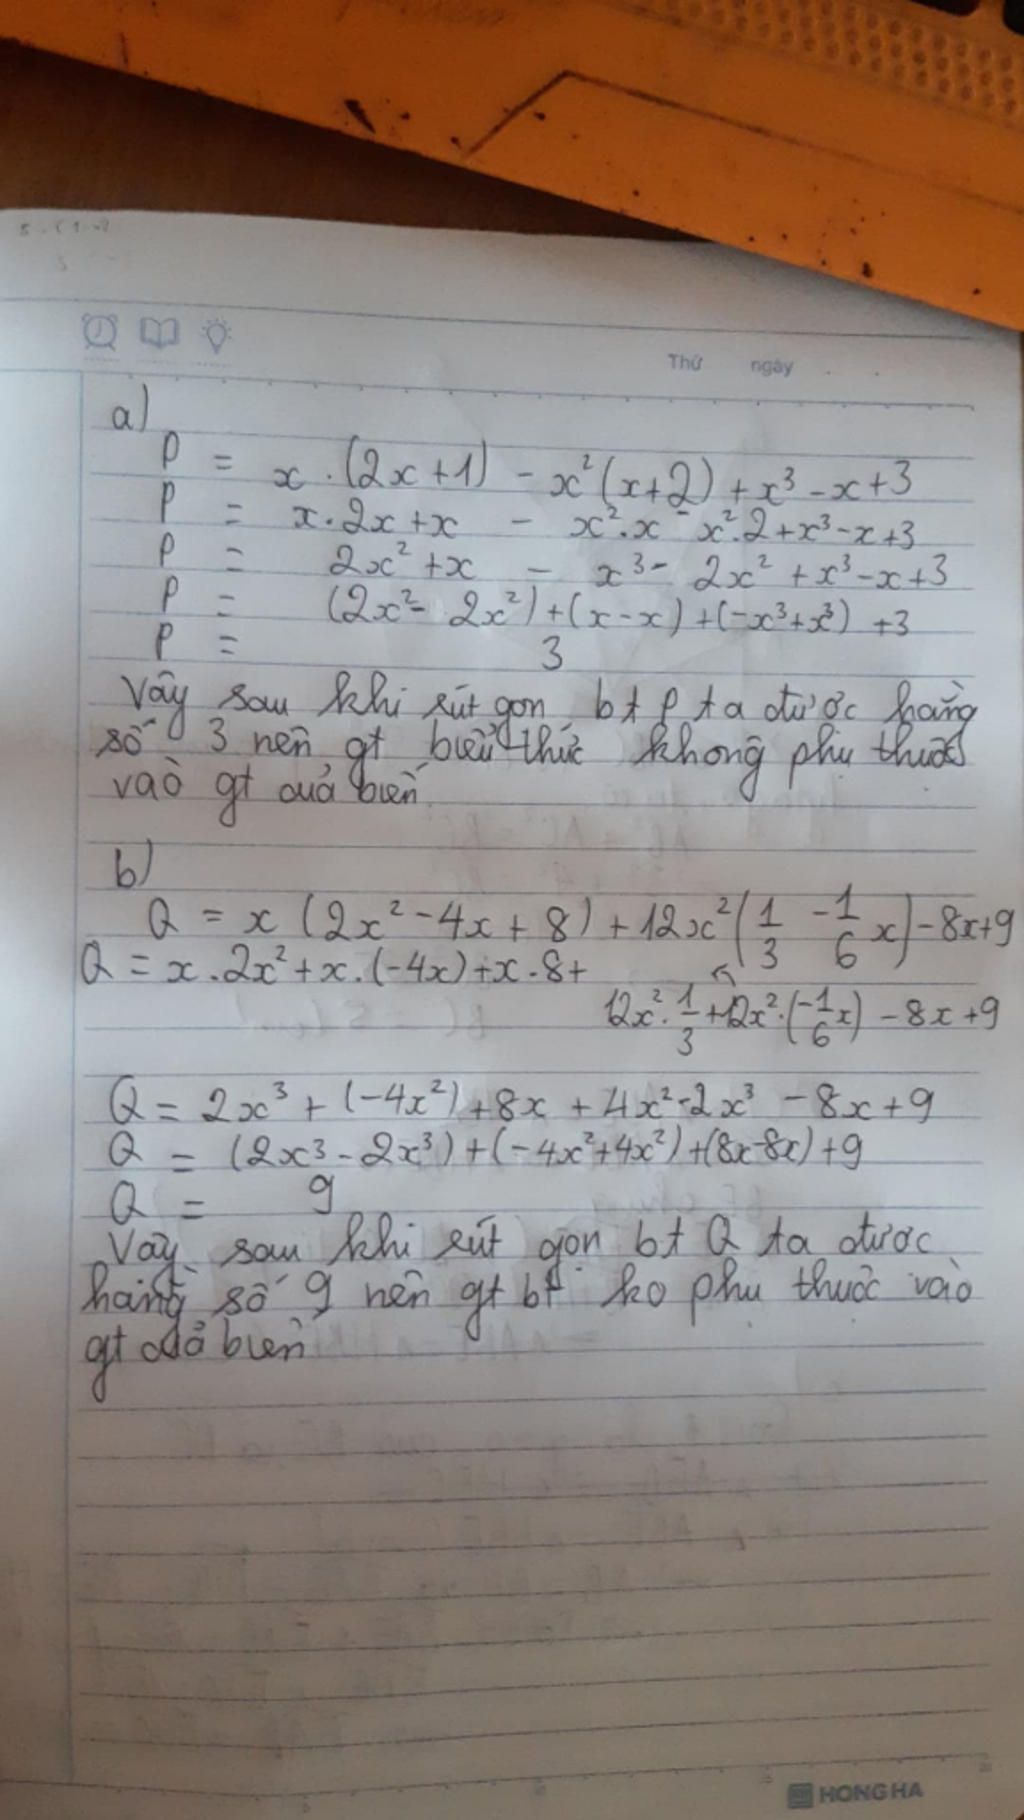 Thứ ngày
a)
P = x . (2x + 1) - x² (x+2) + x³ - x + 3
P = x . 2x + x - x². x - x². 2 + x³ - x + 3
P = 2x² + x - x³ - 2x² + x³ - x + 3
P = (2x² - 2x²) + (x - x) + (-x³ + x³) + 3
P = 3
Vậy sau khi rút gọn bt P ta được hằng
số 3 nên gt biểu thức không phụ thuộc
vào gt của biến
b)
Q = x (2x² - 4x + 8) + 12x² (1/3 - 1/6 x) - 8x + 9
Q = x . 2x² + x . (-4x) + x . 8 +
12x² . 1/3 + 12x² . (-1/6 x) - 8x + 9
Q = 2x³ + (-4x²) + 8x + 4x² - 2x³ - 8x + 9
Q = (2x³ - 2x³) + (-4x² + 4x²) + (8x - 8x) + 9
Q = 9
Vậy sau khi rút gọn bt Q ta được
hằng số 9 nên gt bt ko phụ thuộc vào
gt của biến
HONG HA